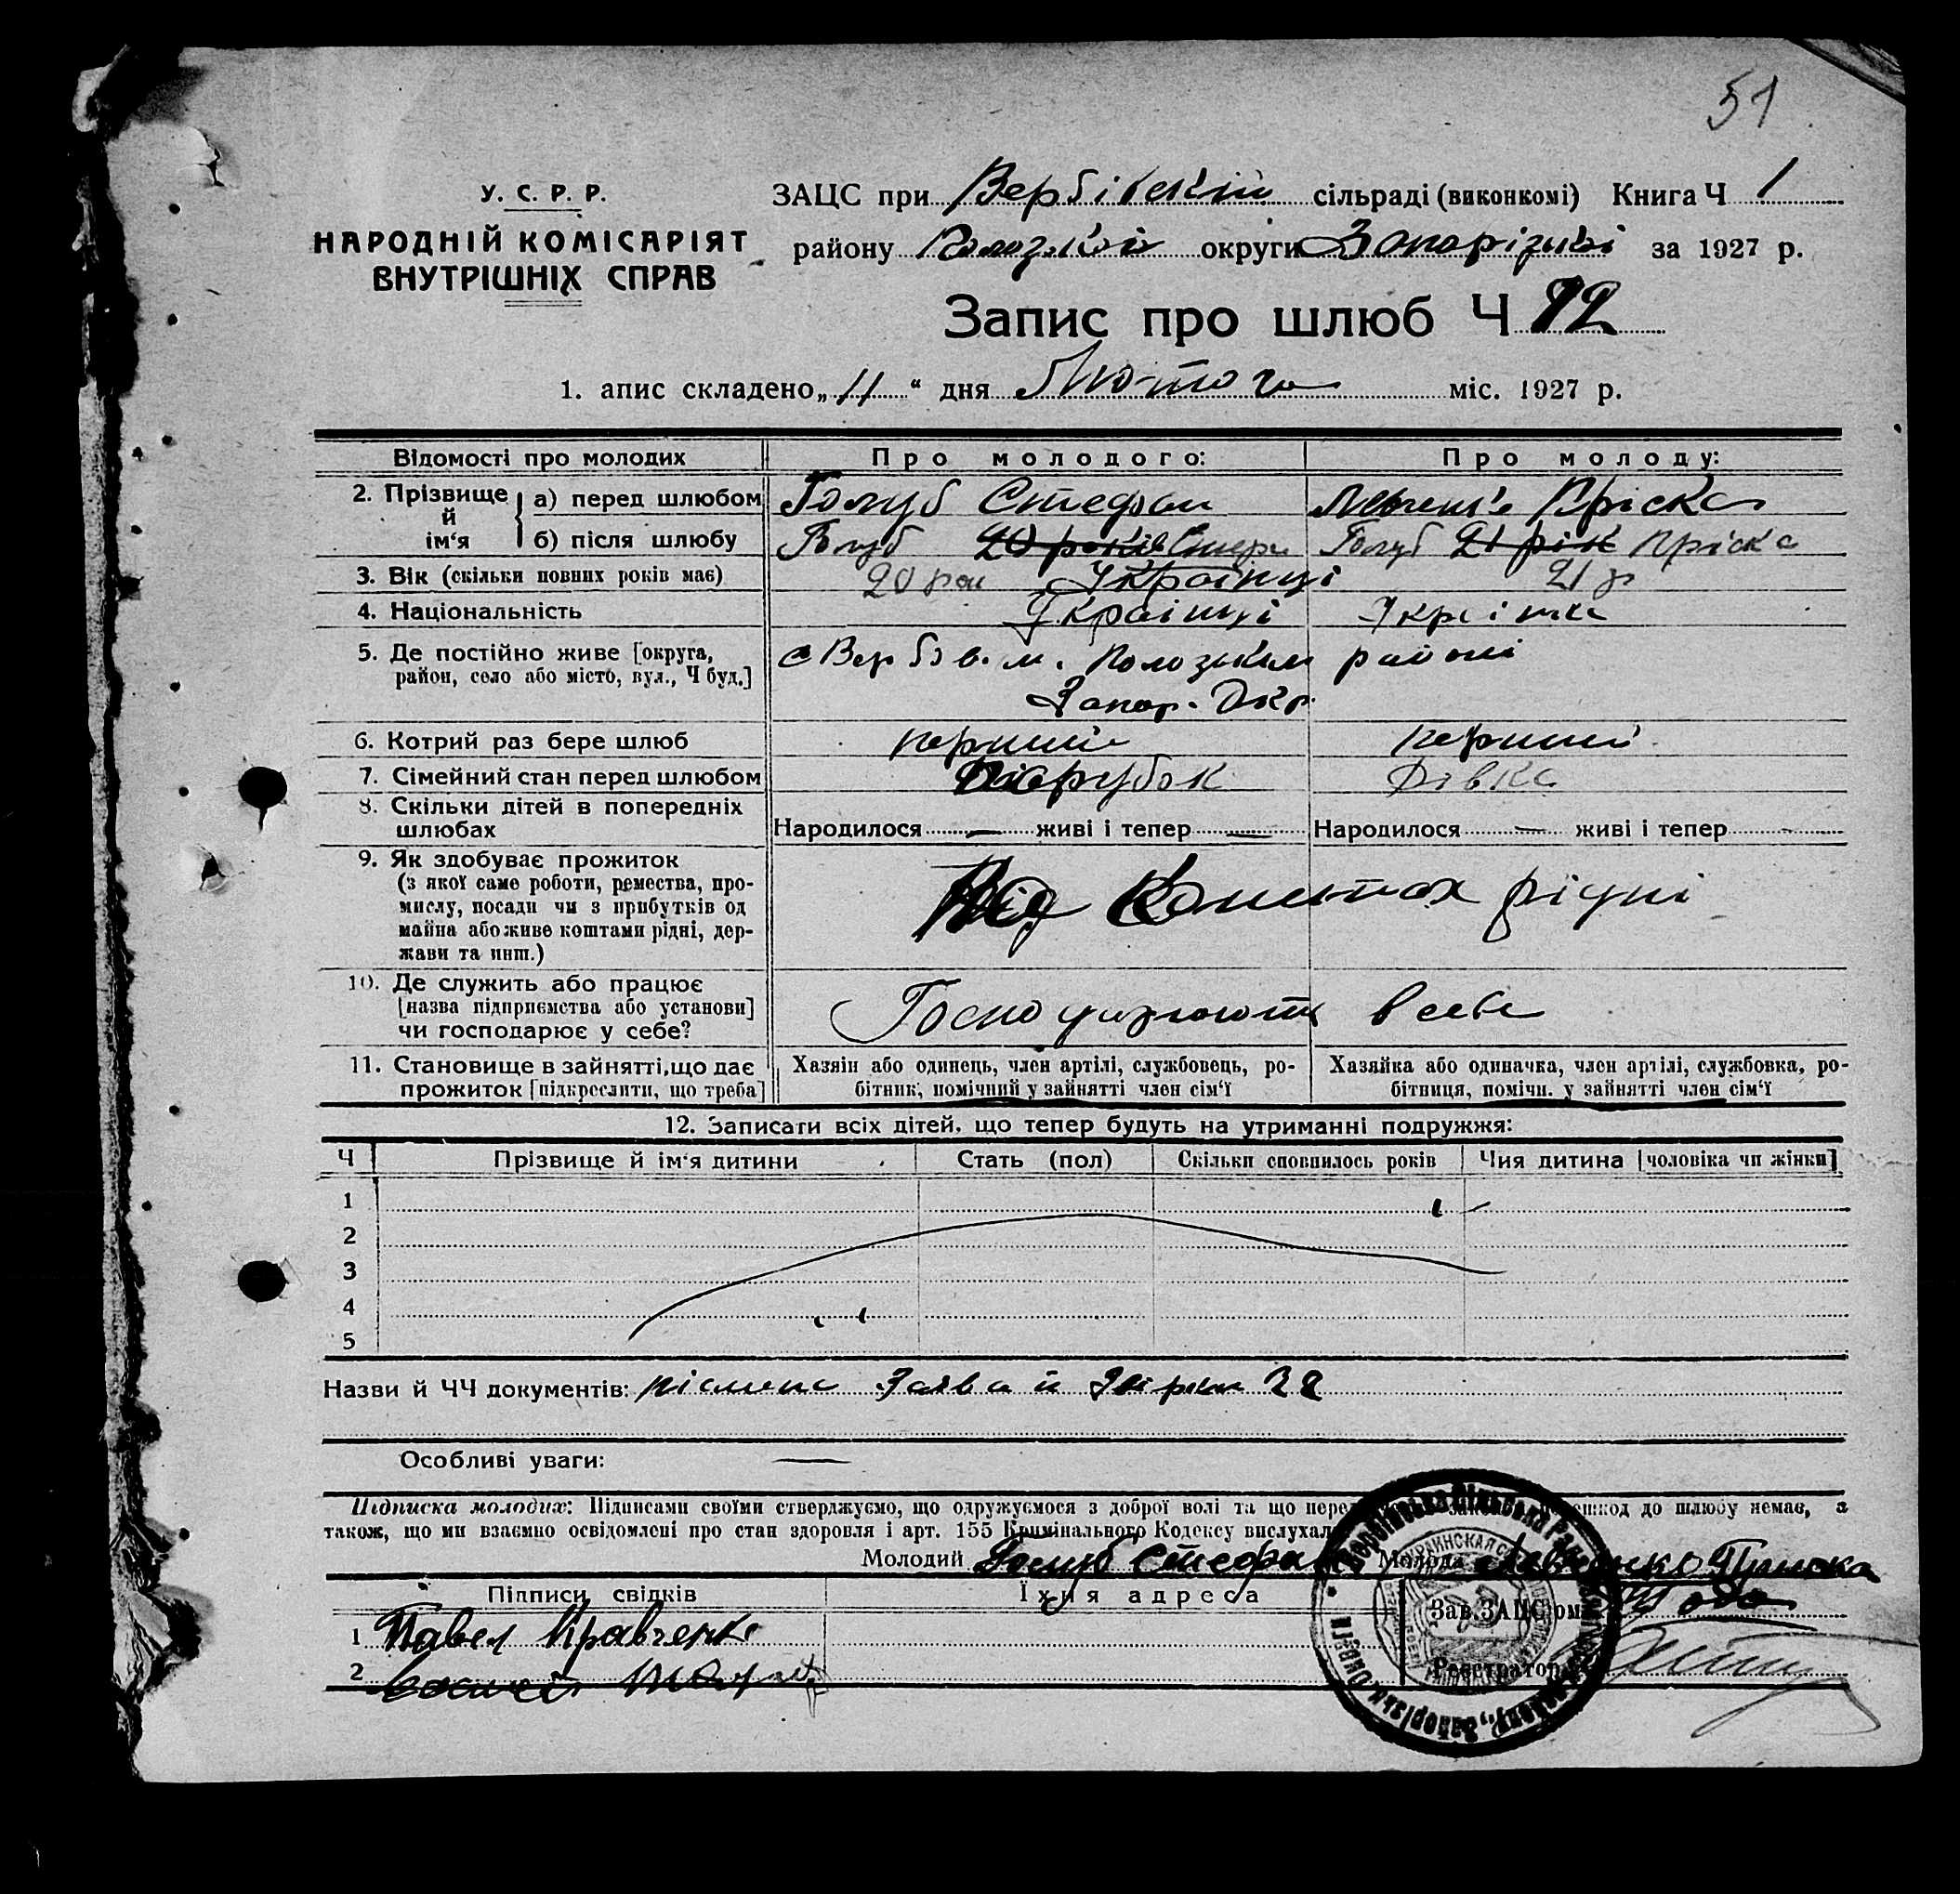 51
У. С. Р. Р.
НАРОДНІЙ КОМІСАРІЯТ
ВНУТРІШНІХ СПРАВ
ЗАЦС при Вербівській сільраді (виконкомі) Книга Ч 1
району округи Запорізької за 1927 р.
Запис про шлюб Ч 12
1. апис складено „11“ дня Лютого міс. 1927 р.
Відомості про молодих Про молодого: Про молоду:
2. Прізвище й ім‘я а) перед шлюбом Голуб Стефан Пріска
б) після шлюбу Голуб 20 років Стефан Голуб 21 рік Пріска
3. Вік (скільки повних років має) 20 рок Українці 21 р
4. Національність Українці Українка
5. Де постійно живе [округа, район, село або місто, вул., Ч буд.] с Вербів. м. Пологськім районі
Запор. Окр.
6. Котрий раз бере шлюб перший перший
7. Сімейний стан перед шлюбом Парубок Дівка
8. Скільки дітей в попередніх шлюбах Народилося — живі і тепер — Народилося — живі і тепер -
9. Як здобуває прожиток
(з якої саме роботи, ремества, промислу, посади чи з прибутків од майна або живе коштами рідні, держави та инш.) Від Коштах рідні
10. Де служить або працює
[назва підприємства або установи]
чи господарює у себе? Господарюють в себе
11. Становище в зайнятті, що дає прожиток [підкреслити, що треба] Хазяін або одинець, член артілі, службовець, робітник, помічний у зайнятті член сім‘ї Хазяйка або одиначка, член артілі, службовка, робітниця, помічн. у зайнятті член сім‘ї
12. Записати всіх дітей, що тепер будуть на утриманні подружжя:
Ч Прізвище й ім‘я дитини Стать (пол) Скільки сповнилось років Чия дитина [чоловіка чи жінки]
1
2
3
4
5
Назви й ЧЧ документів: пісмена Заява й 22
Особливі уваги: —
Підписка молодих: Підписами своїми стверджуємо, що одружуємося з доброї волі та що перешкод до шлюбу немає, а
також, що ми взаємно освідомлені про стан здоровля і арт. 155 Кримінального Кодексу вислухал
Молодий Голуб Стефан Молода Левченко Приска
Підписи свідків Їхня адреса Зав. ЗАЦС‘ом
1 Павел Кравченко
2 Реєстратор